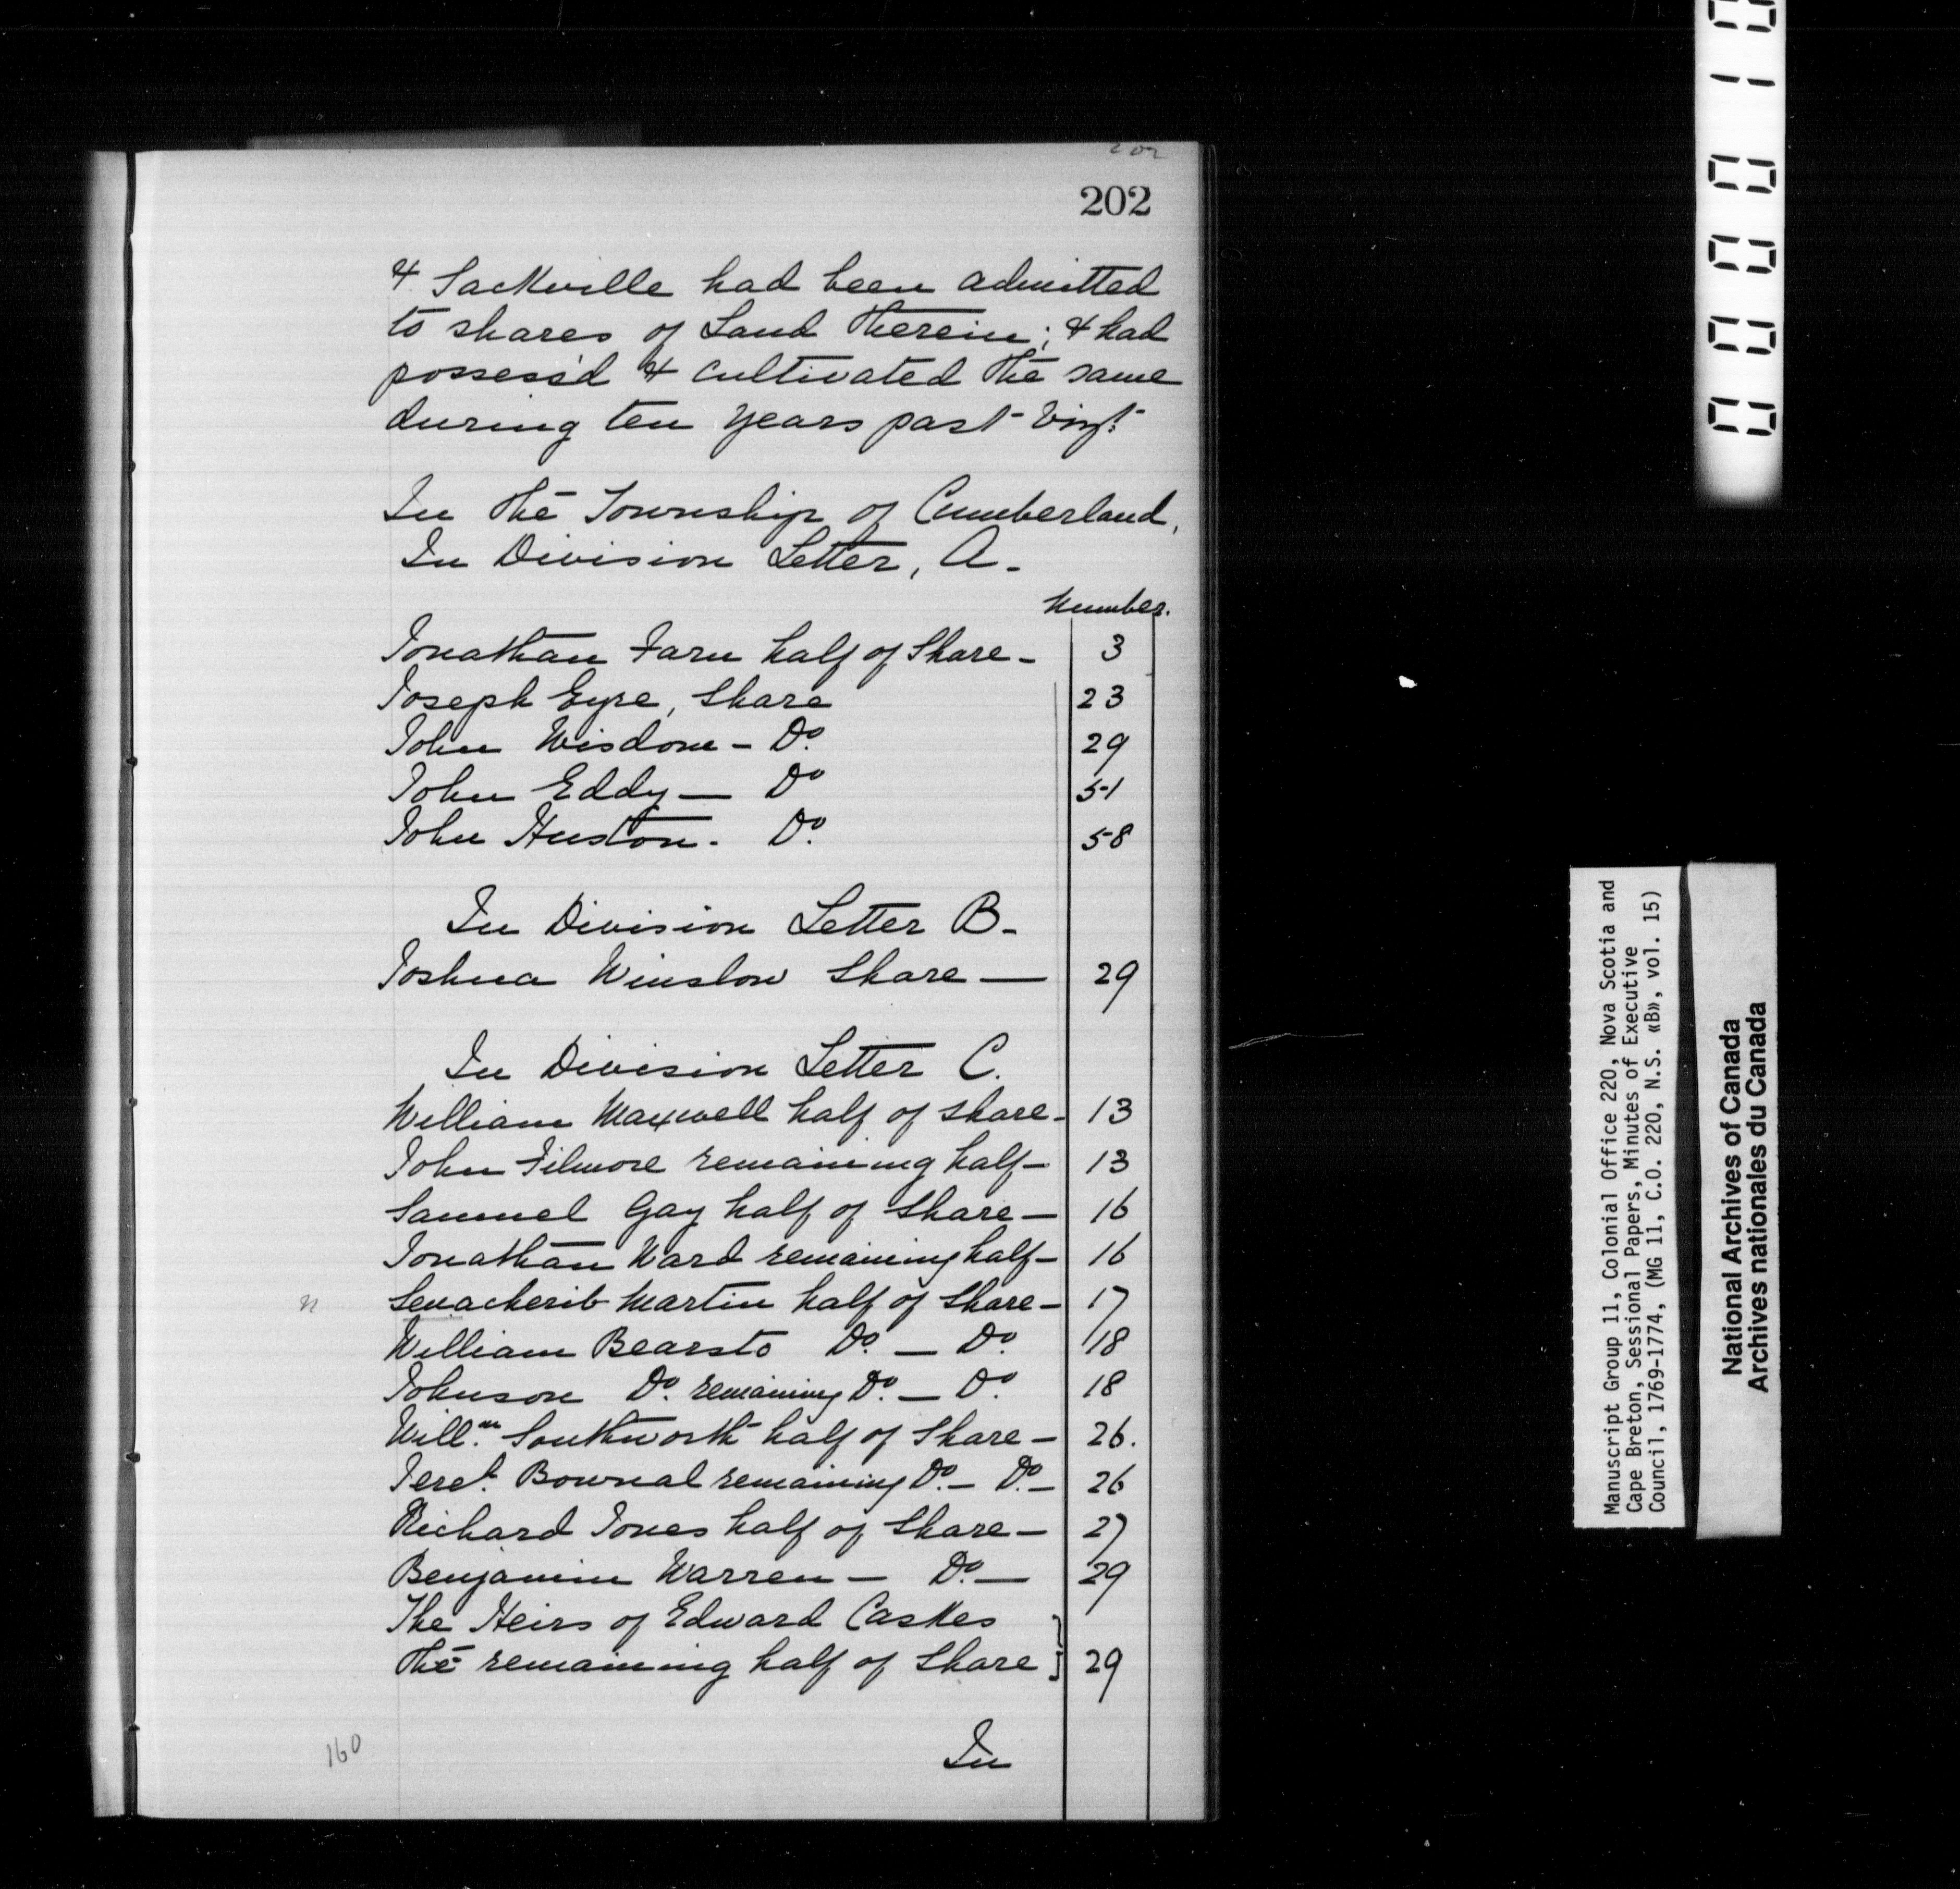 202
202
& Sackville had been admitted
to shares of Land therein; & had
possess'd & cultivated the same
during ten years past vizt.
In the Township of Cumberland,
In Division Letter, A.
Number.
Jonathan Farn half of Share - 3
Joseph Eyre, Share 23
John Wisdom - Do. 29
John Eddy — Do 51
John Huston. Do. 58
In Division Letter B.
Joshua Winslow Share — 29
In Division Letter C.
William Maxwell half of share - 13
John Filmore remaining half - 13
Samuel Gay half of Share — 16
Jonathan Ward remaining half - 16
n Senacherib Martin half of Share - 17
William Bearsto Do. — Do. 18
Johnson Do. remaining Do. — Do. 18
Will.m Southworth half of Share — 26.
Jereh. Bownal remaining Do. — Do. — 26
Richard Jones half of Share — 27
Benjamin Warren — Do. — 29
The Heirs of Edward Caskes
the remaining half of Share } 29
In
160
Manuscript Group 11, Colonial Office 220, Nova Scotia and
Cape Breton, Sessional Papers, Minutes of Executive
Council, 1769-1774, (MG 11, C.O. 220, N.S. «B», vol. 15)
National Archives of Canada
Archives nationales du Canada